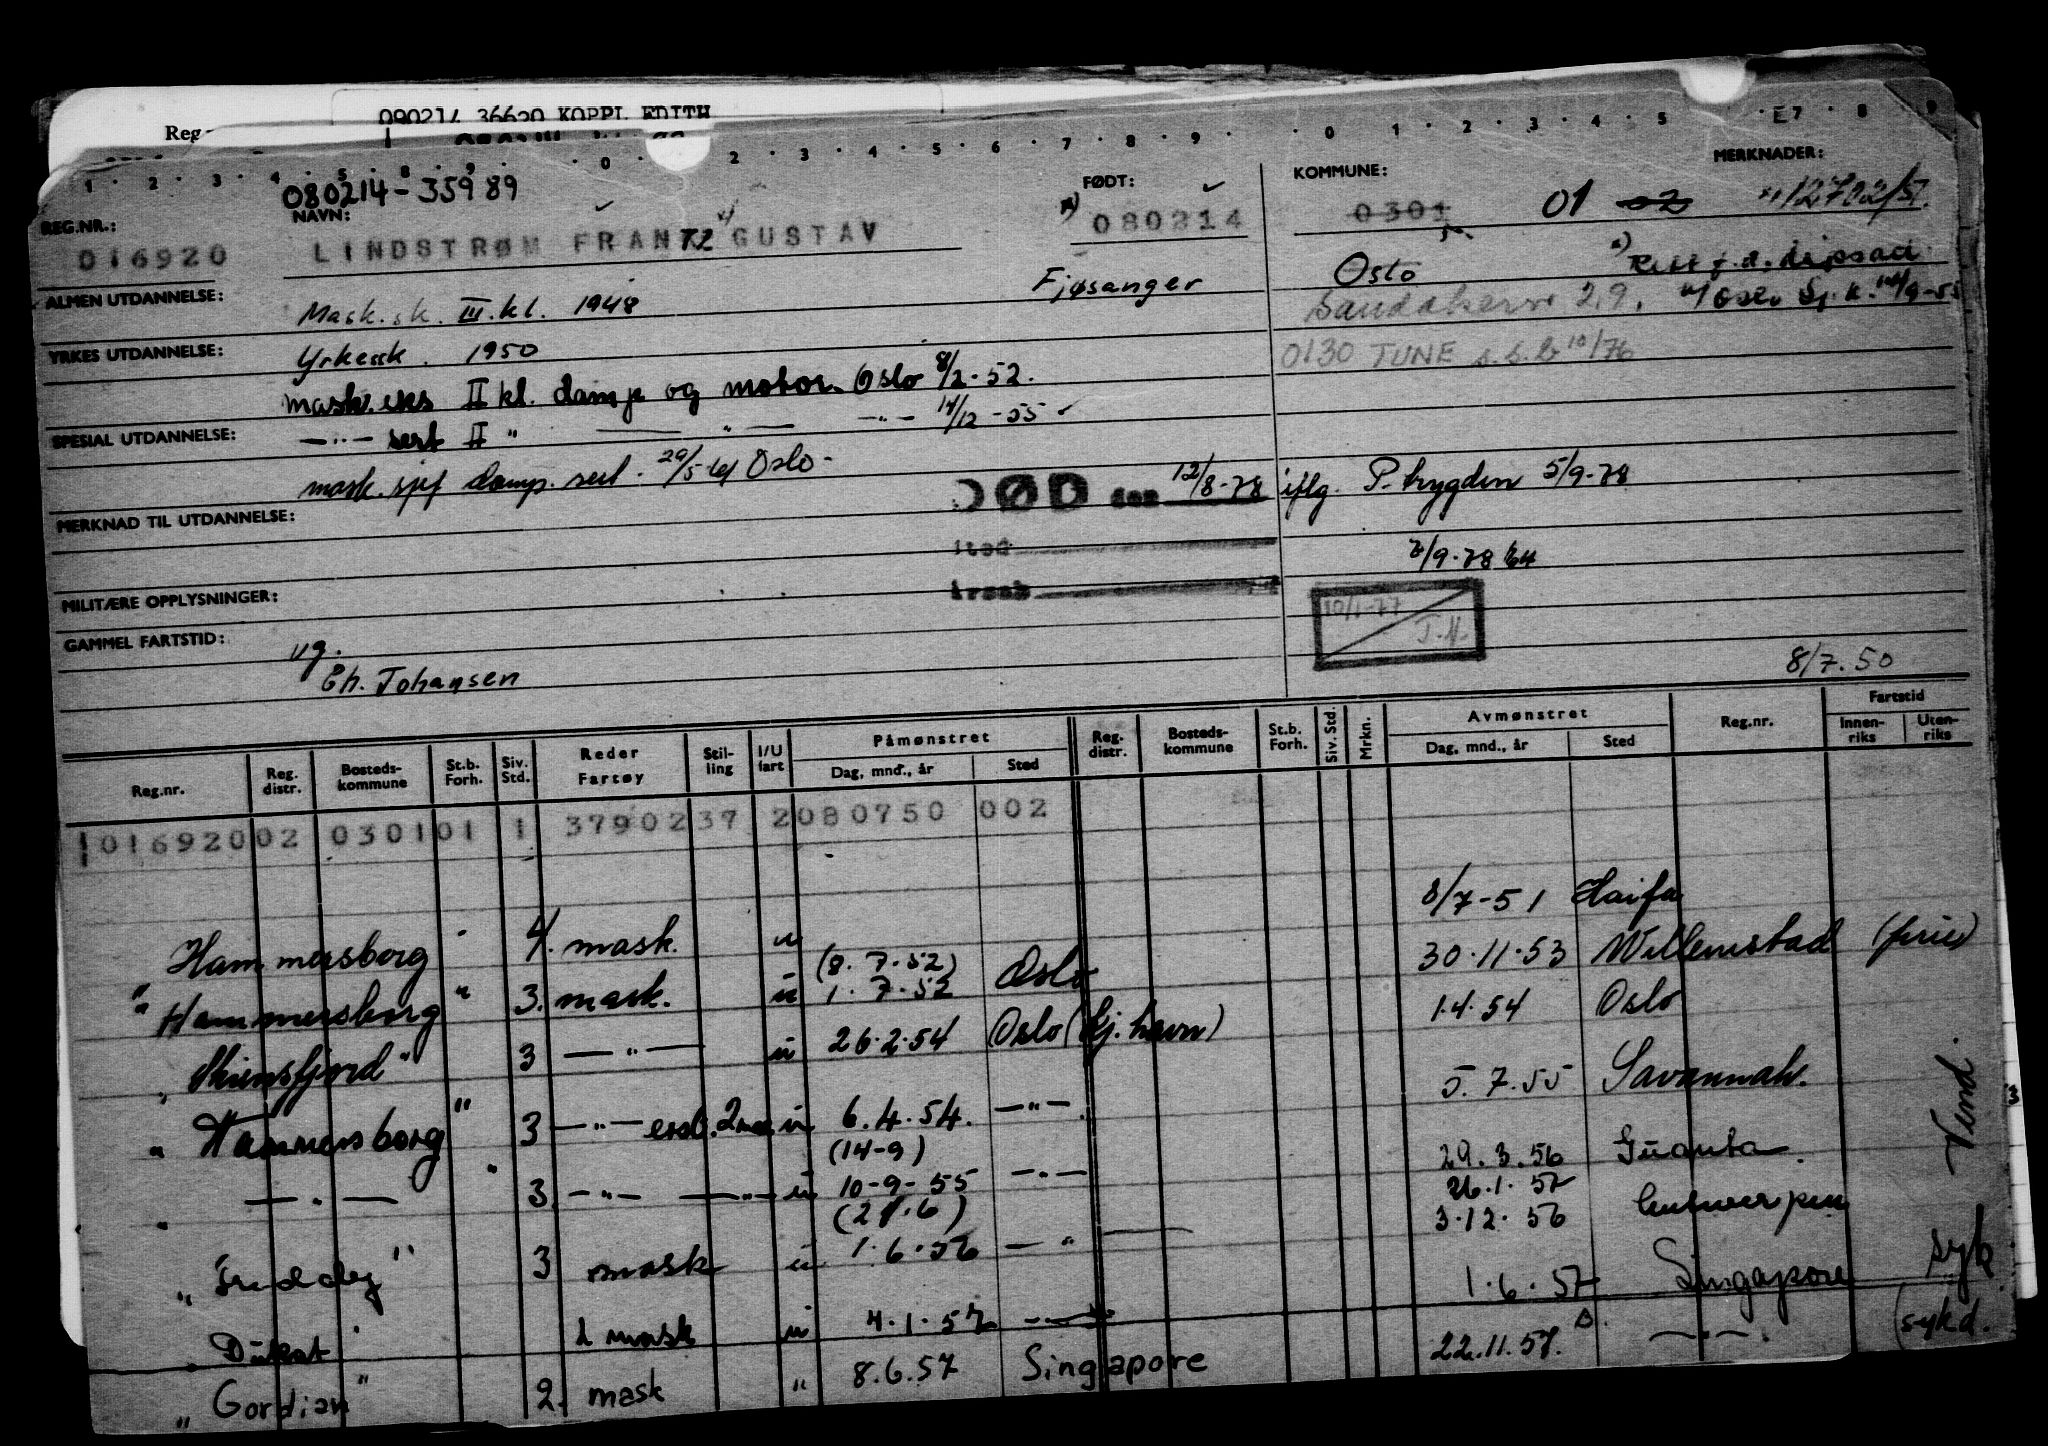 090214 36620 KOPPL EDITH
Reg
1 · 2 · 3 · 4 · 5 · 8 · 9 · 0 · 2 · 3 · 4 · 5 · 6 · 7 · 8 · 9 · 0 · 1 · 2 · 3 · 4 · 5 · E7 · 8 · 9
080214-35989
REG.NR.: NAVN: FØDT: KOMMUNE: MERKNADER:
016920 LINDSTRØM FRANTZ GUSTAV 080214 0301 01 02 12702/57.
ALMEN UTDANNELSE: Mask.sk. III.kl. 1948 Fjøsanger Oslo
Sandakervn 29.
YRKES UTDANNELSE: Yrkessk. 1950 0130 TUNE s.s.b 10/76
mask.eks II kl. damp og motor. Oslo 8/2.52.
SPESIAL UTDANNELSE: —"— sert II " —— " —— —"— 14/12-55
mask. sjef damp. sert. 29/5-61 Oslo.
DØD den 12/8-78 iflg. P.trygden 5/9-78
MERKNAD TIL UTDANNELSE:
sted
7/9-78
årsak
MILITÆRE OPPLYSNINGER:
10/1-77
J.H.
GAMMEL FARTSTID: ug.
Eh. Johansen
8/7.50
Reg.nr. Reg. distr. Bosteds-kommune St.b. Forh. Siv. Std. Reder Fartøy Stil-ling I/U fart Påmønstret Dag, mnd., år Sted Reg. distr. Bosteds-kommune St.b. Forh. Siv. Std. Mrkn. Avmønstret Dag, mnd., år Sted Reg.nr. Fartstid Innen-riks Uten-riks
101692002 030101 1 3790237 2080750 002
" Hammersborg " 4. mask. u 8/7-51 Haifa
" Hammersborg " 3. mask. u (8.7.52) 1.7.52 Oslo 30.11.53 Willemstad (ferie)
" Skiensfjord" 3 —"— u 26.2.54 Oslo (Kj.havn) 1.4.54 Oslo
" Hammersborg " 3 —"— u 6.4.54. —"—. 5.7.55 Savannah.
" —"— " 3 —"— —"— u (14-9) 10-9-55 —"— 29.3.56 Guanta.
" " 3 mask u (21.6) 1.6.56 —"— 26.1.57 3.12.56 Antwerpen Vend.
" Dukat 2 mask u 4.1.57 —"— 1.6.57 Singapore syk
" Gordian " 2. mask " 8.6.57 Singapore 22.11.57. —"—. (sykd.